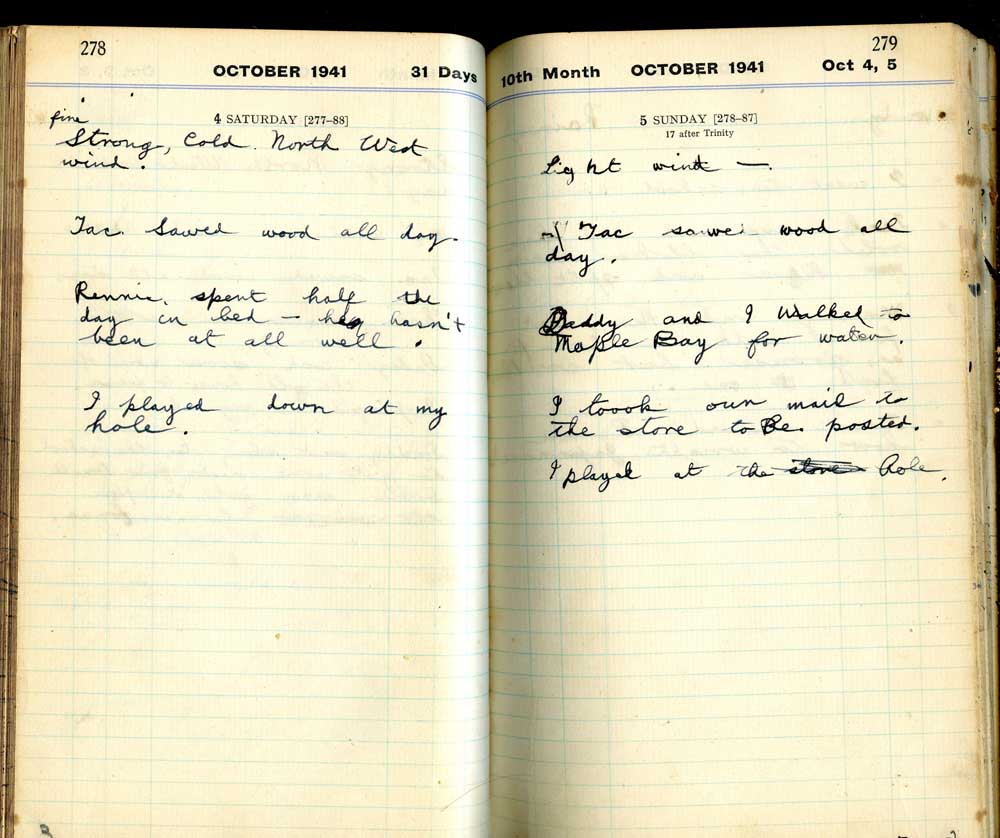 278
OCTOBER 1941 31 Days
4 SATURDAY [277–88]
fine
Strong, Cold. North West
wind.
Tac. Sawed wood all day.
Rennie. spent half the
day in bed – he hasn't
been at all well.
I played down at my
hole.
279
10th Month OCTOBER 1941 Oct 4, 5
5 SUNDAY [278–87]
17 after Trinity
Light wind —.
Tac sawed wood all
day.
Daddy and I Walked to
Maple Bay for water.
I toook our mail to
the store to Be posted.
I played at the store hole.